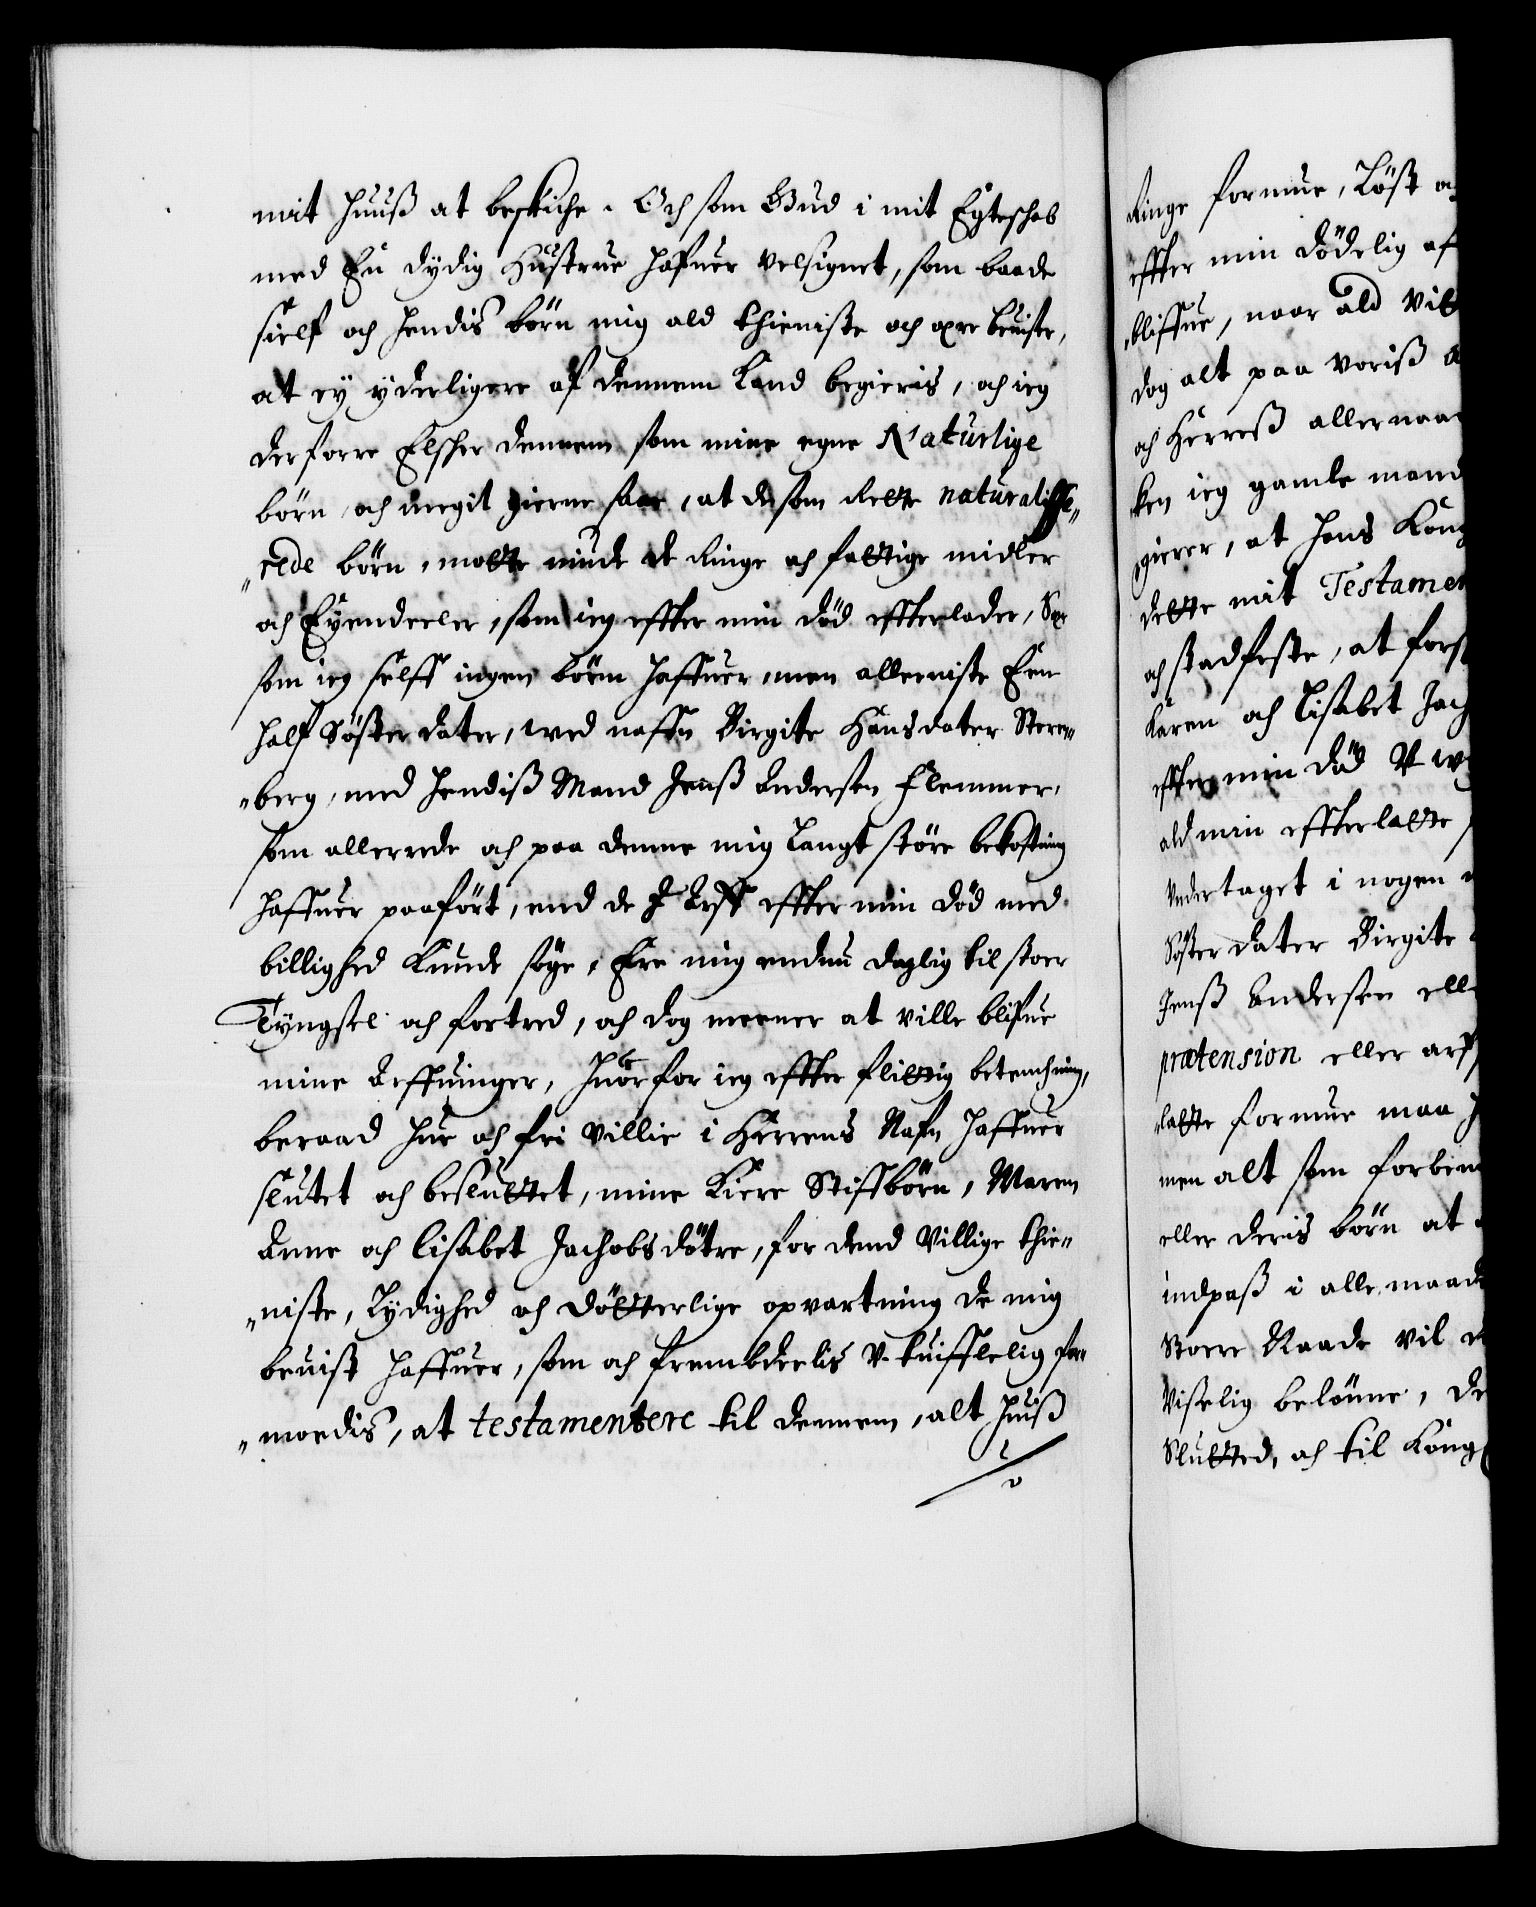 mit Huuß at beskiche. Och som Gud i mit Egteschab
med En dydig Hustrue hafuer velsignet, som baade
sielf och hendis börn mig ald thieniste och ære beuiste,
at ey yderligere af dennem kand begieris, och ieg
derforre Elsker dennem som mine egne Naturlige
börn, och megit gierne saae, at de som Rette naturalisse„
„rede börn, motte niude de Ringe och fattige midler
och Eyendeeler, som ieg effter min död effterlader, Saa
som ieg selff ingen börn haffuer, men alleeniste Een
half Söster dater, wed naffn Birgite Hansdater Steen„
„berg, med hendiß Mand Jenß Andersen Flemmer,
som allerrede och paa denne mig langt störe bekostning
haffuer paafört, end de J Arff effter min död med
billighed kunde söge, Ere mig endnu daglig til stoer
Tyngsel och fortred, och dog meener at ville blifue
mine Arffuinger, Huorfor ieg effter flittig betenchning,
beraad hue och fri villie i Herrens Nafn haffuer
slutet och besluttet, mine kiere Stiffbörn, Maren
Anne och Lisabet Jachobsdötre, for dend villige thie„
„niste, lydighed och dötterlige opvartning de mig
beuist haffuer, som och frembdeelis V-tuifflelig for„
„moedis, at testamentere til dennem, alt huiß
Ringe formue, löst o
effter min dödelig af
bliffue, naar ald vil
dog alt paa voriß a
och Herreß allernaa
ken ieg gamle mand
gierer, at hans Kong
dette mit Testamen
och stadfeste, at fors
Karen och Lisabet Jach
effter min död V-w
ald min effterlatte
Vndertaget i nogen
Söster dater Birgite
Jenß Andersen elle
prætension eller arf
„latte formue maa h
men alt som forben
eller deris börn at
indpaß i alle maade
Stoere Naade vil
Visselig belönne, de
Slutted, och til Kong